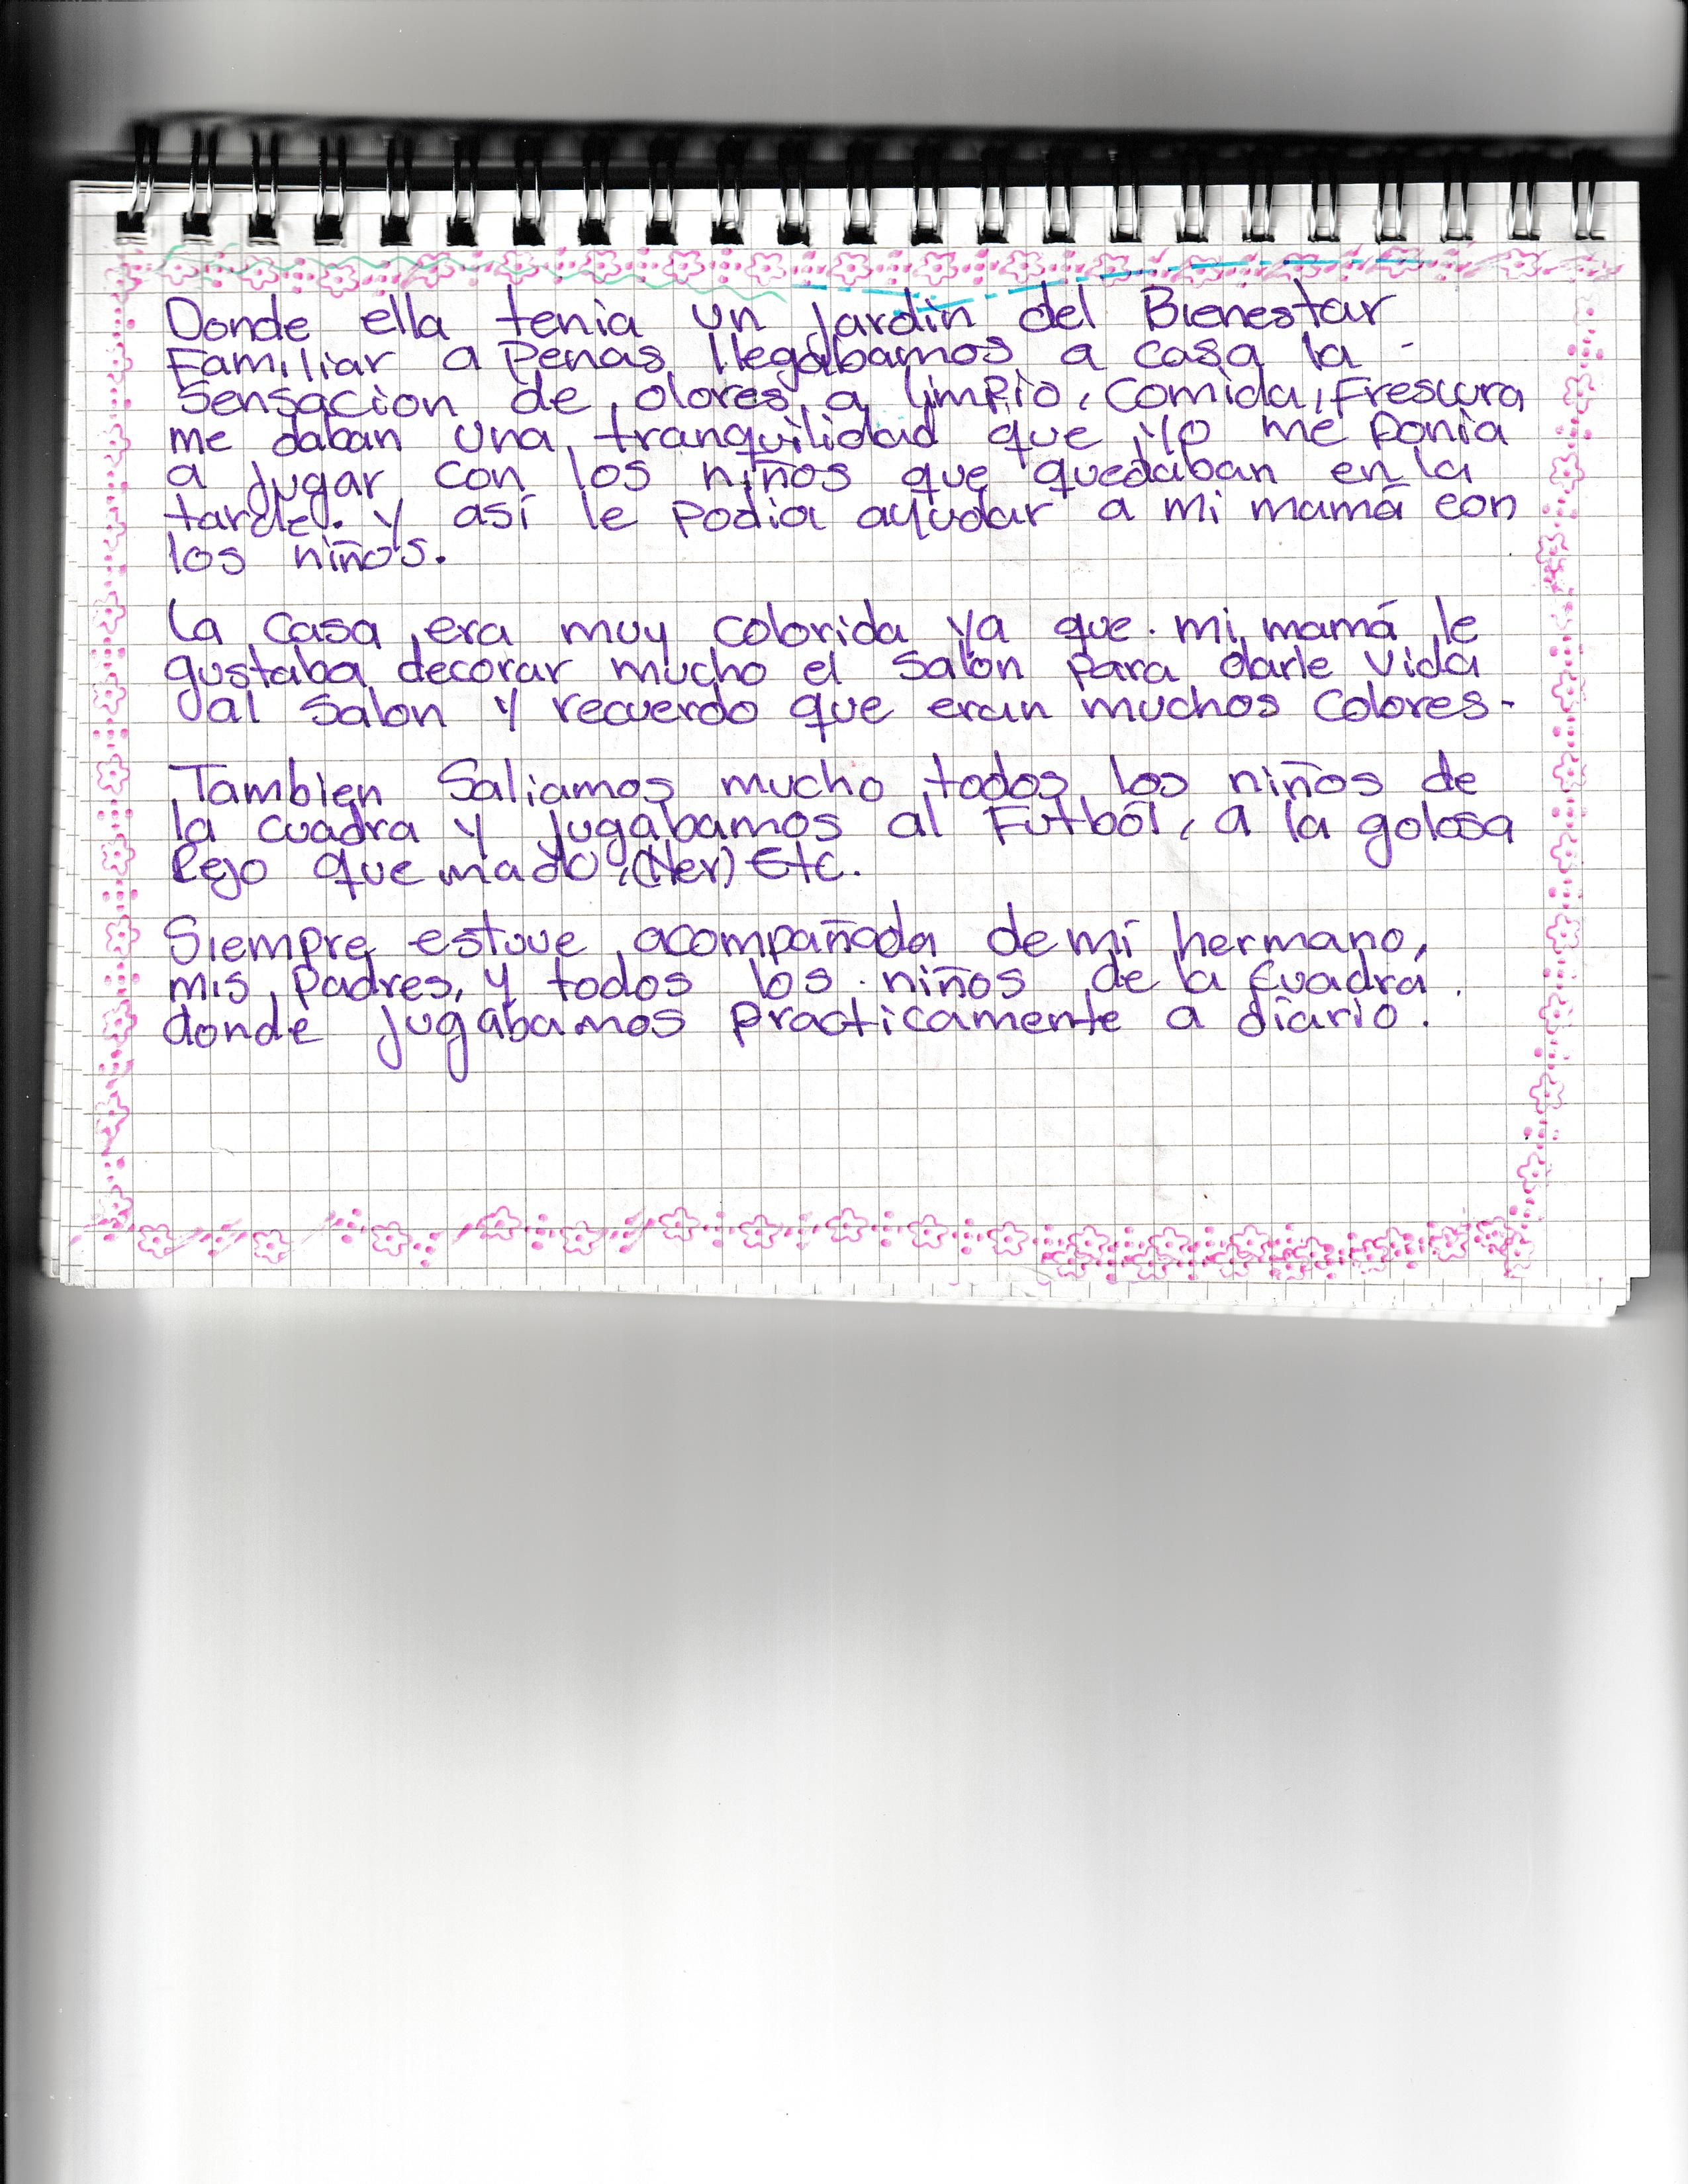 Donde ella tenia un jardin del Bienestar
Familiar a penas llegabamos a casa la -
Sensacion de olores a limpio, Comida, Frescura
me daban una tranquilidad que yo me ponia
a jugar con los niños que quedaban en la
tarde. y así le podia ayudar a mi mamá con
los niños.
La casa era muy colorida ya que. mi mamá le
gustaba decorar mucho el salon para darle vida
al salon y recuerdo que eran muchos colores-
Tambien Saliamos mucho todos los niños de
la cuadra y jugabamos al Futbol, a la golosa
Rejo quemado, (Yer) Etc.
Siempre estuve acompañada de mi hermano,
mis padres, y todos los niños de la cuadra.
donde jugabamos practicamente a diario.